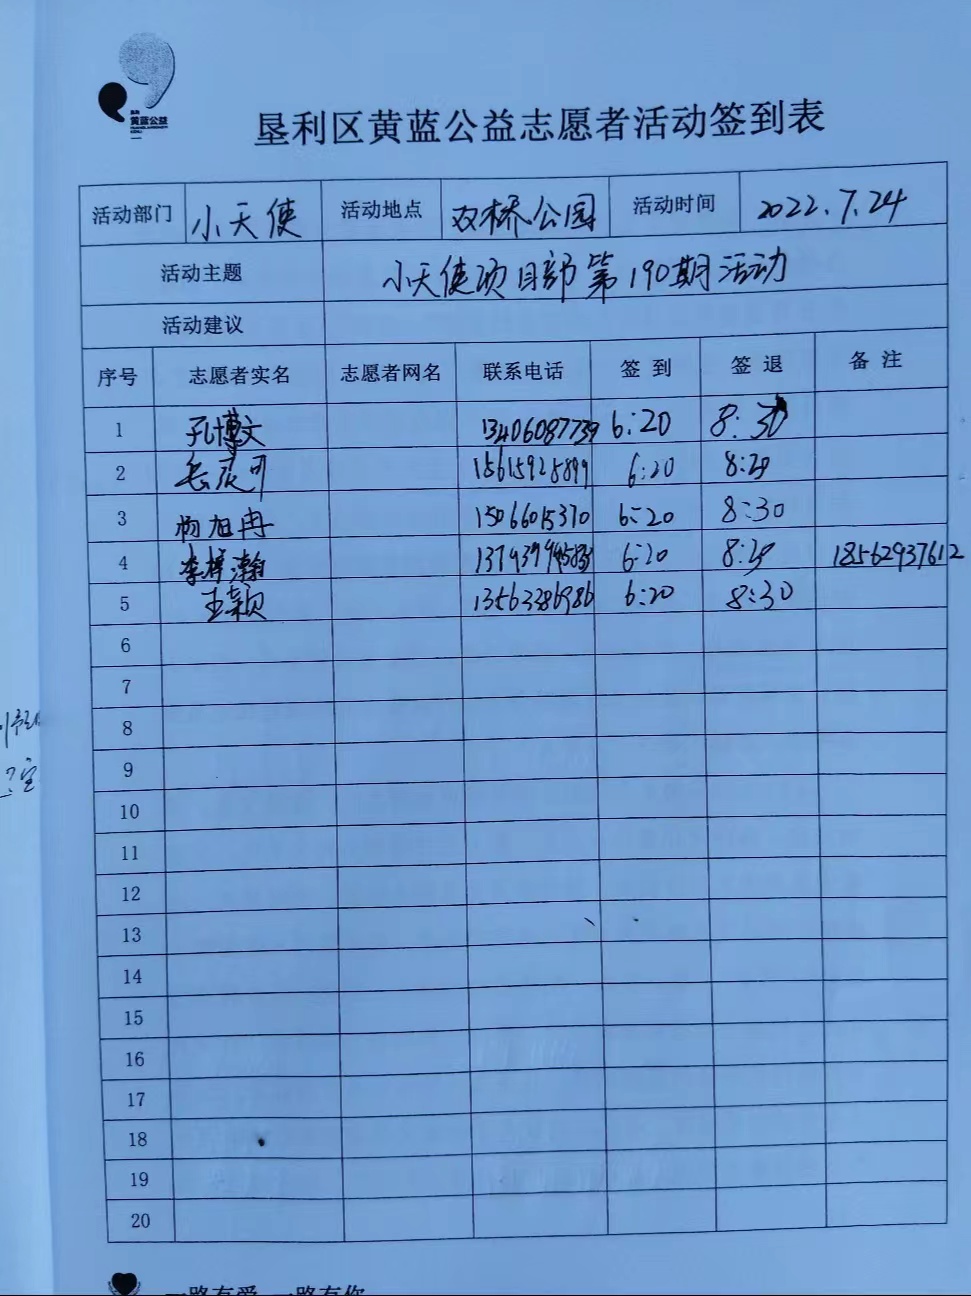 黄蓝公益
垦利区黄蓝公益志愿者活动签到表
活动部门 小天使 活动地点 双桥公园 活动时间 2022.7.24
活动主题 小天使项目部第190期活动
活动建议
序号 志愿者实名 志愿者网名 联系电话 签到 签退 备注
1 孔博文 13406087739 6:20 8:30
2 15615925899 6:20 8:30
3 杨旭冉 15066015370 6:20 8:30
4 李梓瀚 6:20 8:30 18562937612
5 王颖 13563386986 6:20 8:30
6
7
8
9
10
11
12
13
14
15
16
17
18
19
20
一路有爱 一路有你